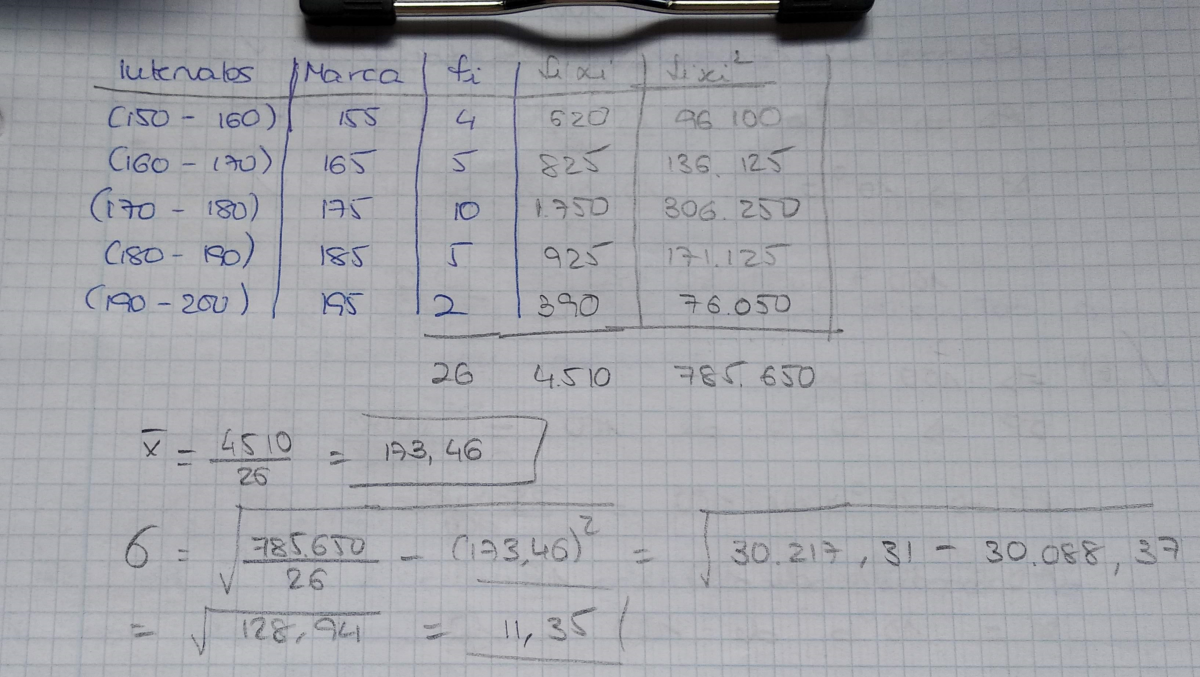 Intervalos Marca fi fi xi fi xi²
(150 - 160) 155 4 620 96.100
(160 - 170) 165 5 825 136.125
(170 - 180) 175 10 1.750 306.250
(180 - 190) 185 5 925 171.125
(190 - 200) 195 2 390 76.050
26 4.510 785.650
x̄ = 4510/26 = 173,46
σ = √(785.650/26 - (173,46)²) = √(30.217,31 - 30.088,37)
= √128,94 = 11,35